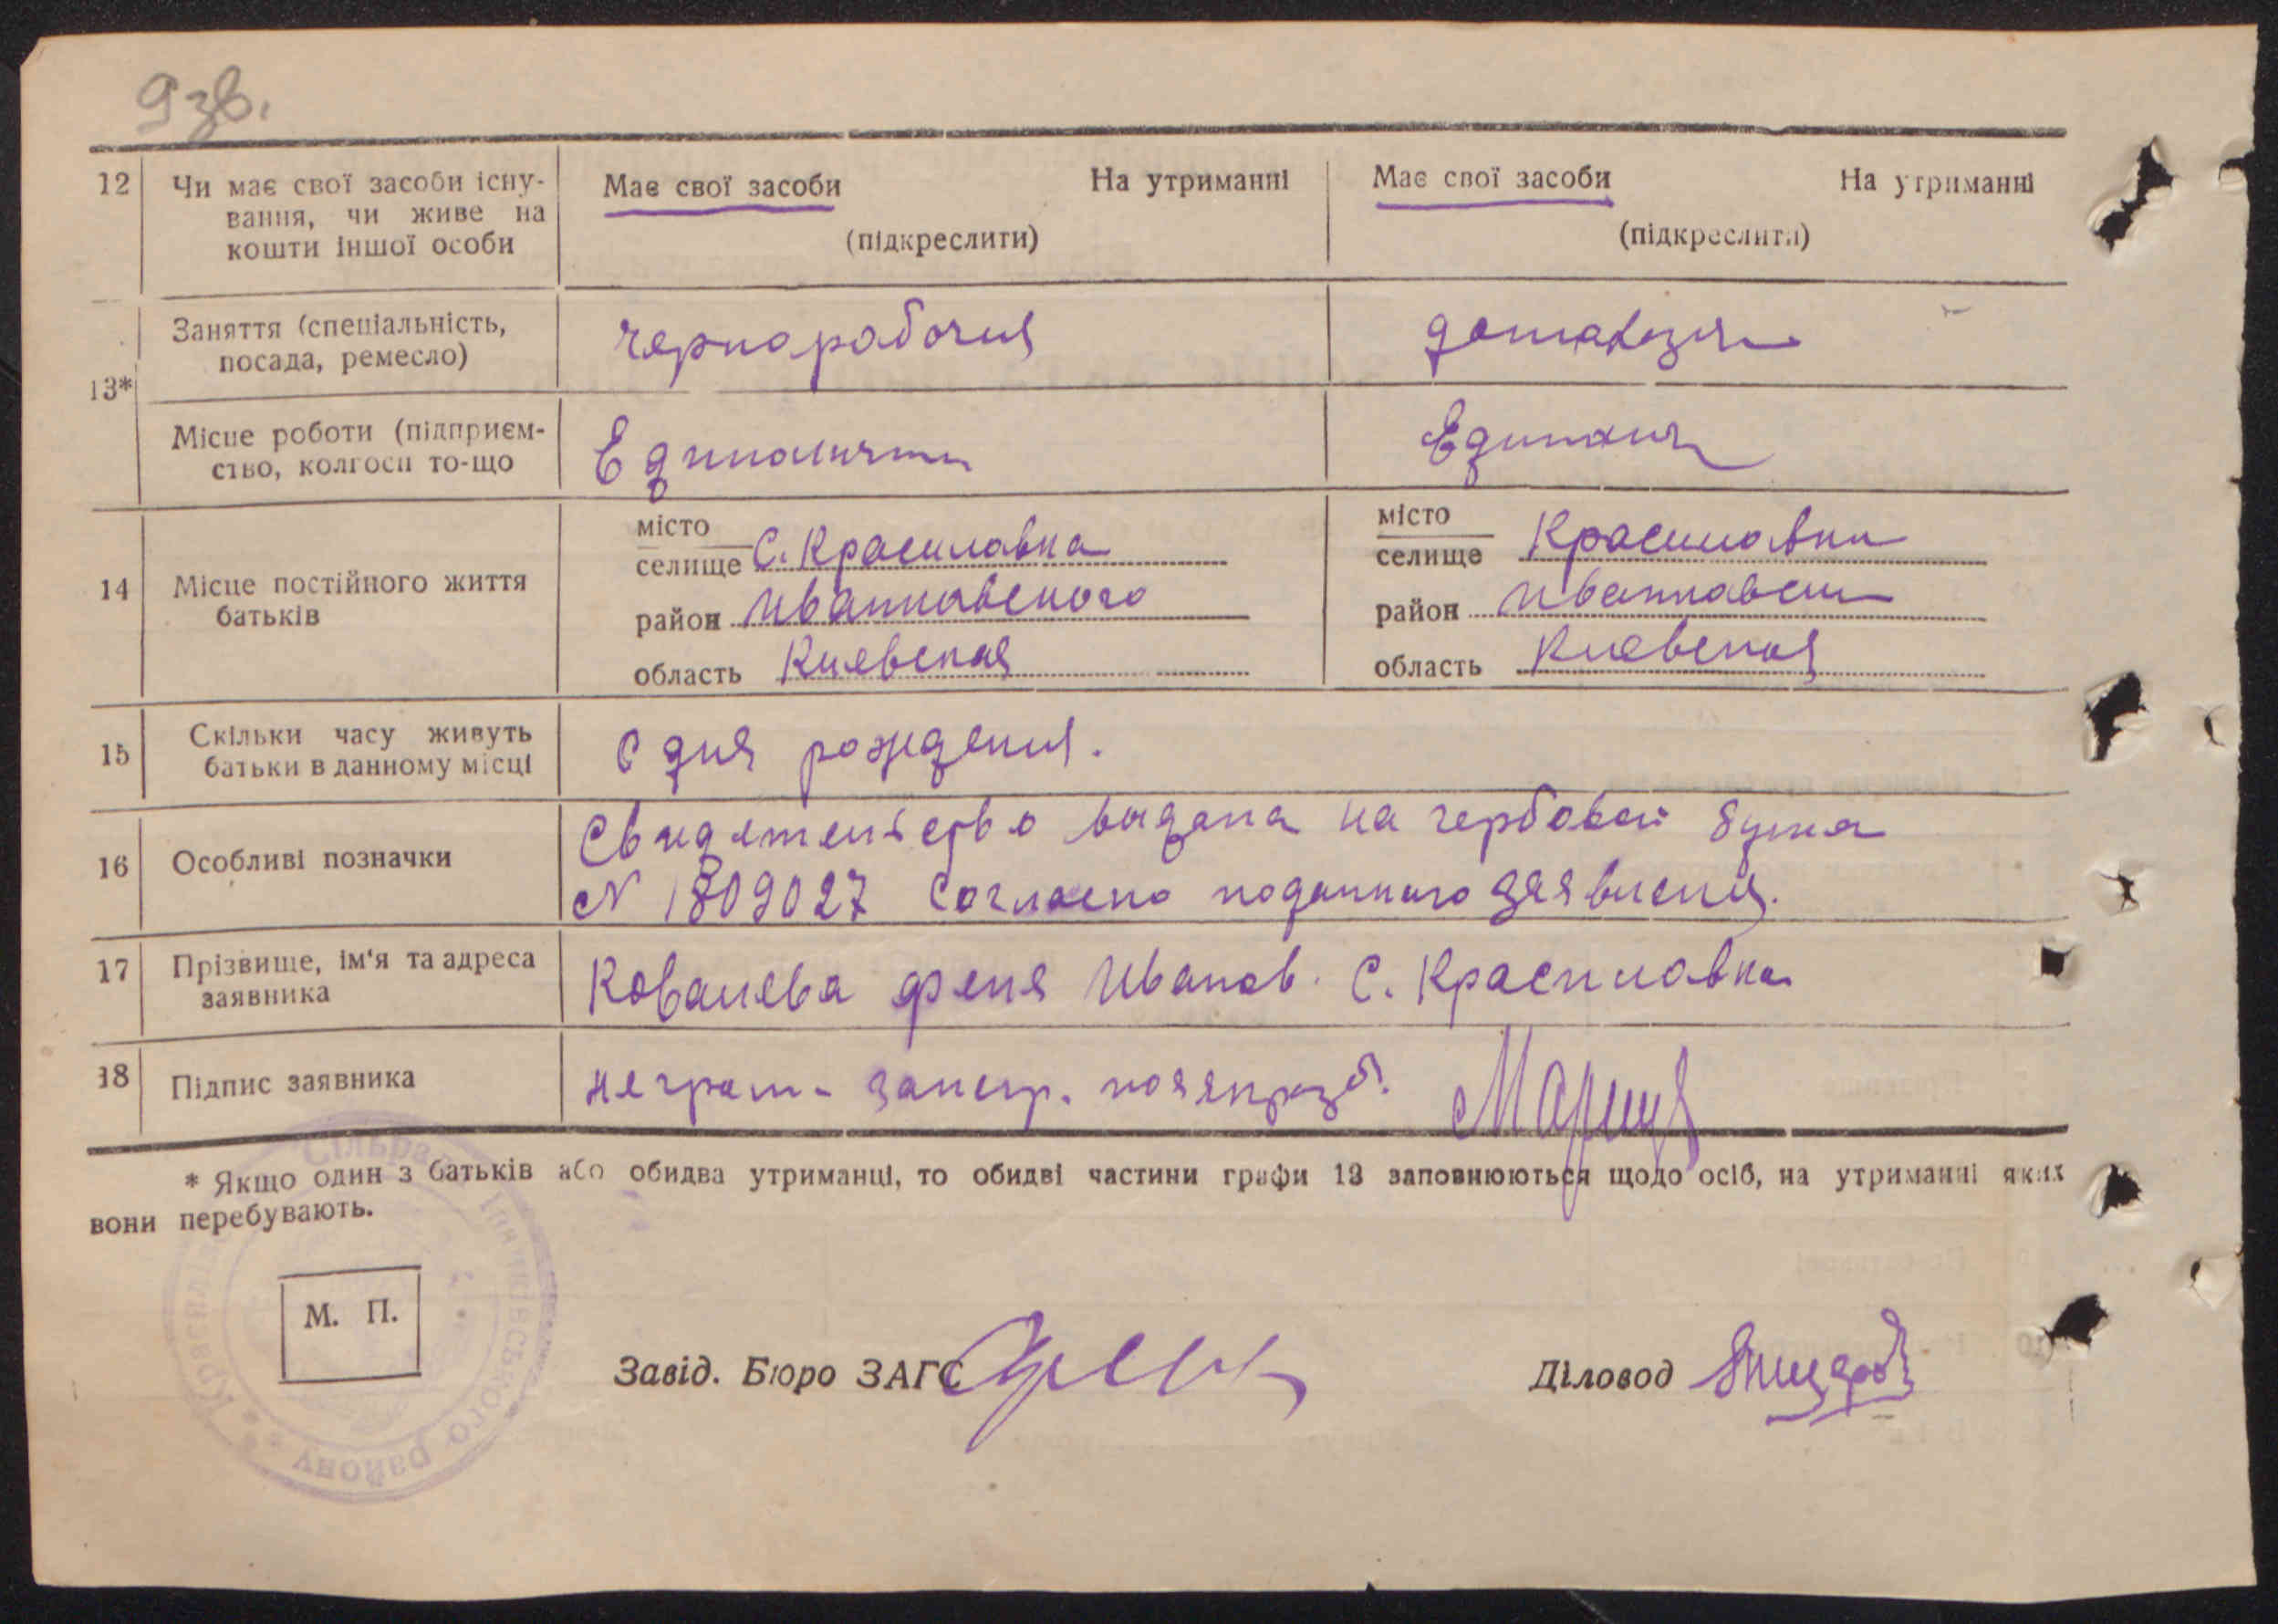 9 зв.
12 Чи має свої засоби існу-
вання, чи живе на
кошти іншої особи
Має свої засоби На утриманні
(підкреслити)
Має свої засоби На утриманні
(підкреслити)
13*
Заняття (спеціальність,
посада, ремесло)
чернорабочия
домахозяи
Місце роботи (підприєм-
ство, колгосп то-що
Единоличн
14 Місце постійного життя
батьків
місто
селище С. Красиловка
район Иванковского
область Киевская
місто
селище Красиловки
район Иванковски
область Киевская
15 Скільки часу живуть
батьки в данному місці
С дня рождения.
16 Особливі позначки
Свидетельство выдана на гербовой бумга
N 1809027 Согласно поданного заявления.
17 Прізвище, ім'я та адреса
заявника
Ковалева Феня Иванов. С. Красиловка
18 Підпис заявника
неграм-
* Якщо один з батьків або обидва утриманці, то обидві частини графи 13 заповнюються щодо осіб, на утриманні яких
вони перебувають.
М. П.
Завід. Бюро ЗАГС
Діловод